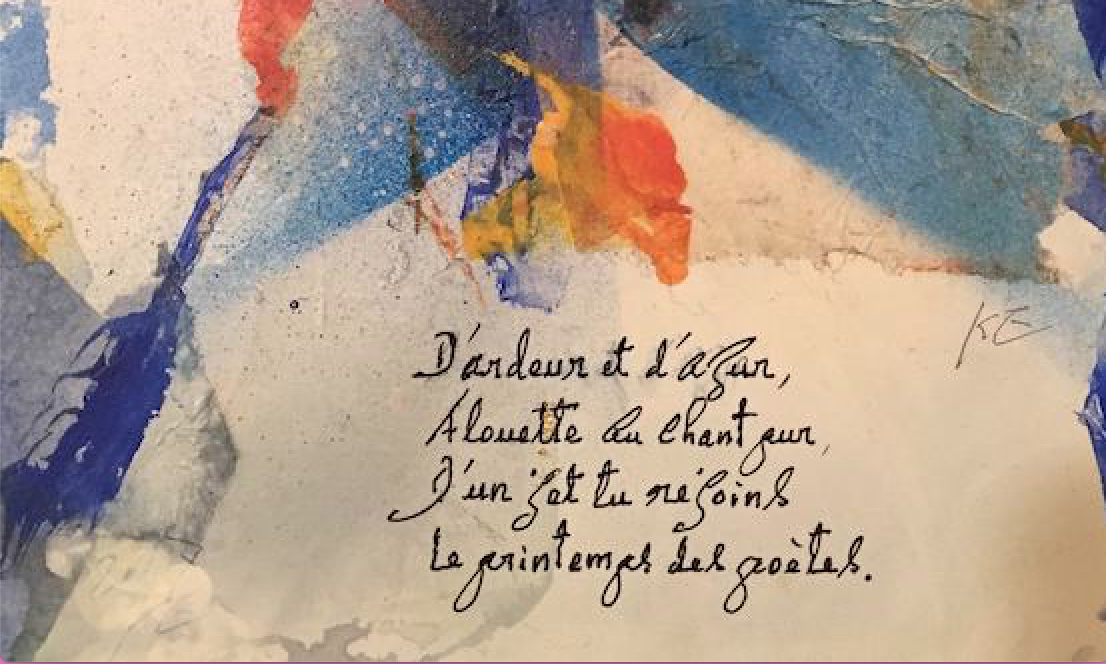 KE
D'ardeur et d'azur,
Alouette au chant pur,
D'un jet tu rejoins
Le printemps des poètes.